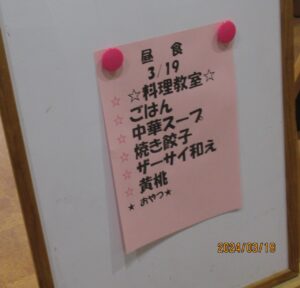 昼 食
3/19
☆料理教室☆
☆ ごはん
☆ 中華スープ
☆ 焼き餃子
☆ ザーサイ和え
☆ 黄桃
★ おやつ★
2024/03/19